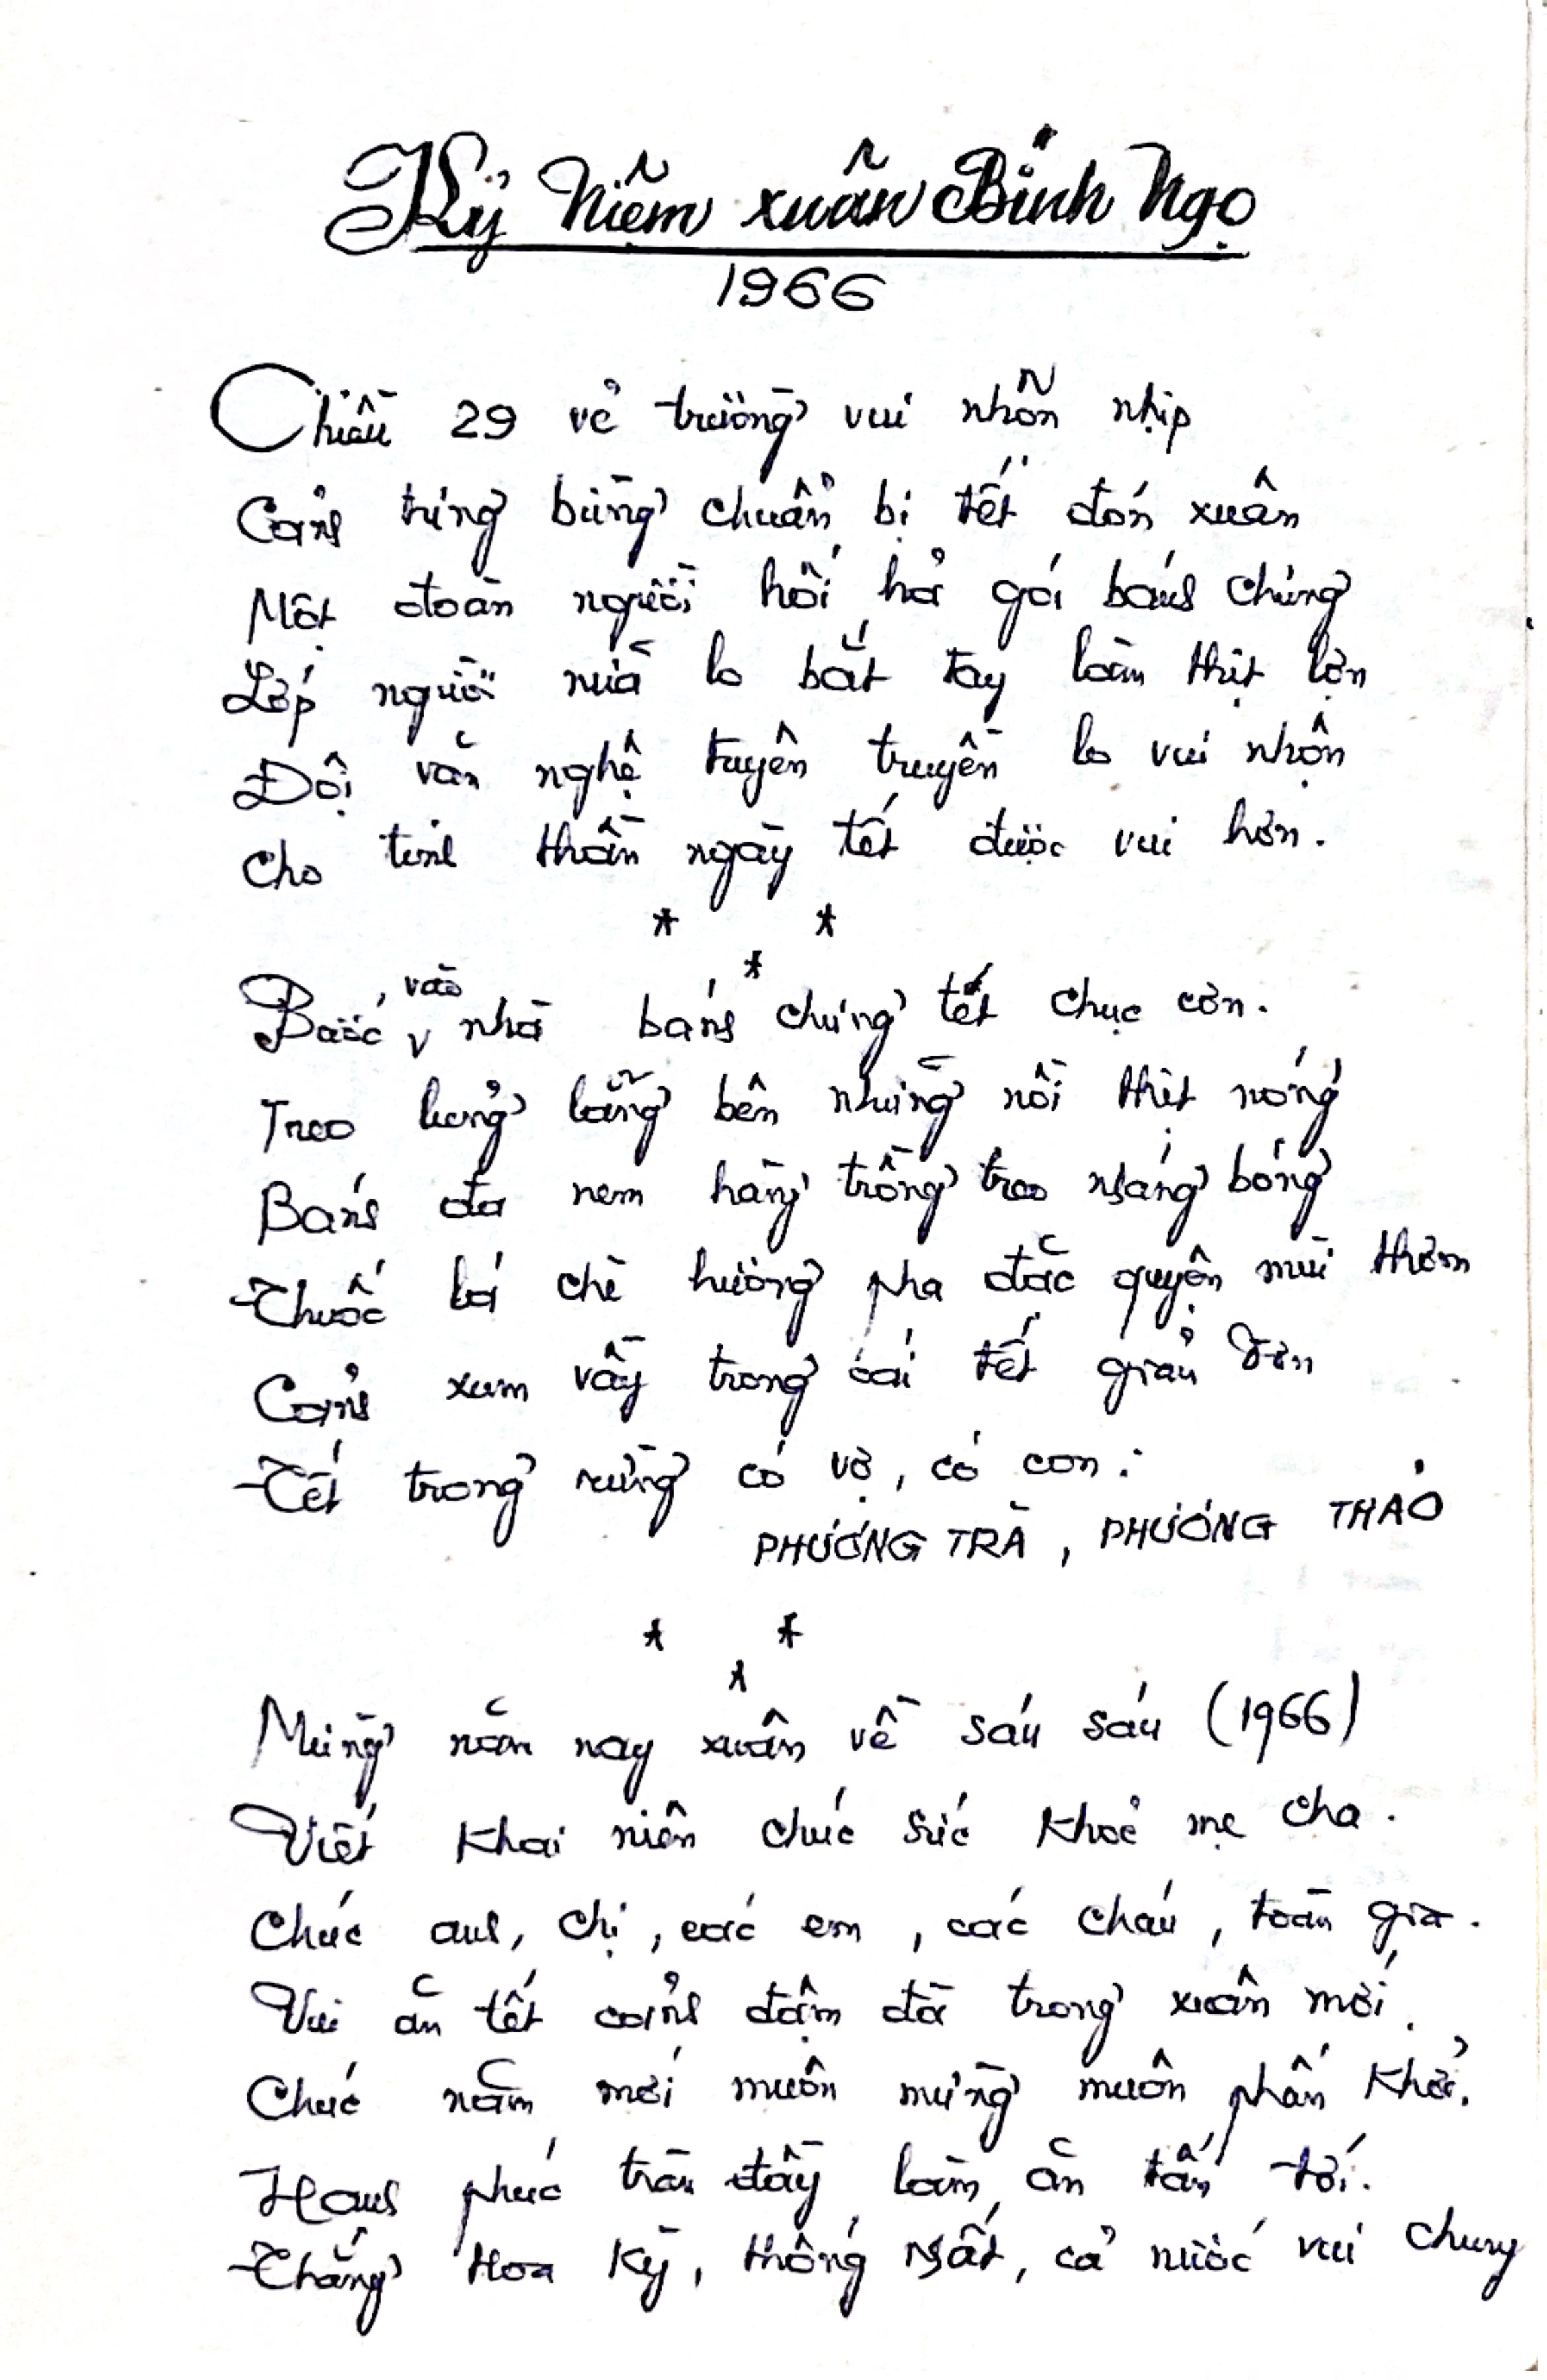 Kỷ Niệm xuân Bính Ngọ
1966
Chiều 29 về trường vui nhộn nhịp
Cảnh tưng bừng chuẩn bị tết đón xuân
Một đoàn người hối hả gói bánh chưng
Lớp người nữa lo bắt tay làm thịt lợn
Đội văn nghệ tuyên truyền lo vui nhộn
Cho tinh thần ngày tết được vui hơn.
* *
*
Bước vào nhà bánh chưng tết chục cơn.
Treo lủng lẳng bên những nồi thịt nóng
Bánh đa nem hàng trồng treo sáng bóng
Thuốc lá chè hương pha đặc quyện mùi thơm
Cảnh xum vầy trong cái tết giản đơn
Tết trong rừng có vợ, có con:
PHƯƠNG TRÀ, PHƯƠNG THẢO
* *
*
Mừng năm nay xuân về sáu sáu (1966)
Viết khai niên chúc sức khoẻ mẹ cha.
Chúc anh, chị, các em, các cháu, toàn gia.
Vui ăn tết cảnh đậm đà trong xuân mới.
Chúc năm mới muôn mừng muôn phấn khởi.
Hạnh phúc tràn đầy làm ăn tấn tới.
Thắng Hoa Kỳ, thống nhất, cả nước vui chung